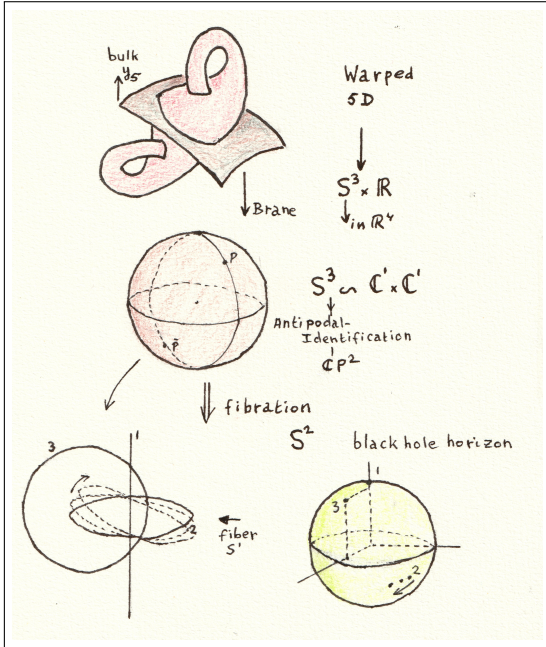 bulk
y5
Warped
5D
S³ × ℝ
in ℝ⁴
Brane
P
p̃
S³ ∽ ℂ¹ × ℂ¹
Antipodal-
Identification
ℂP²
fibration
S²
black hole horizon
3
1
2
fiber
S¹
1
3
2